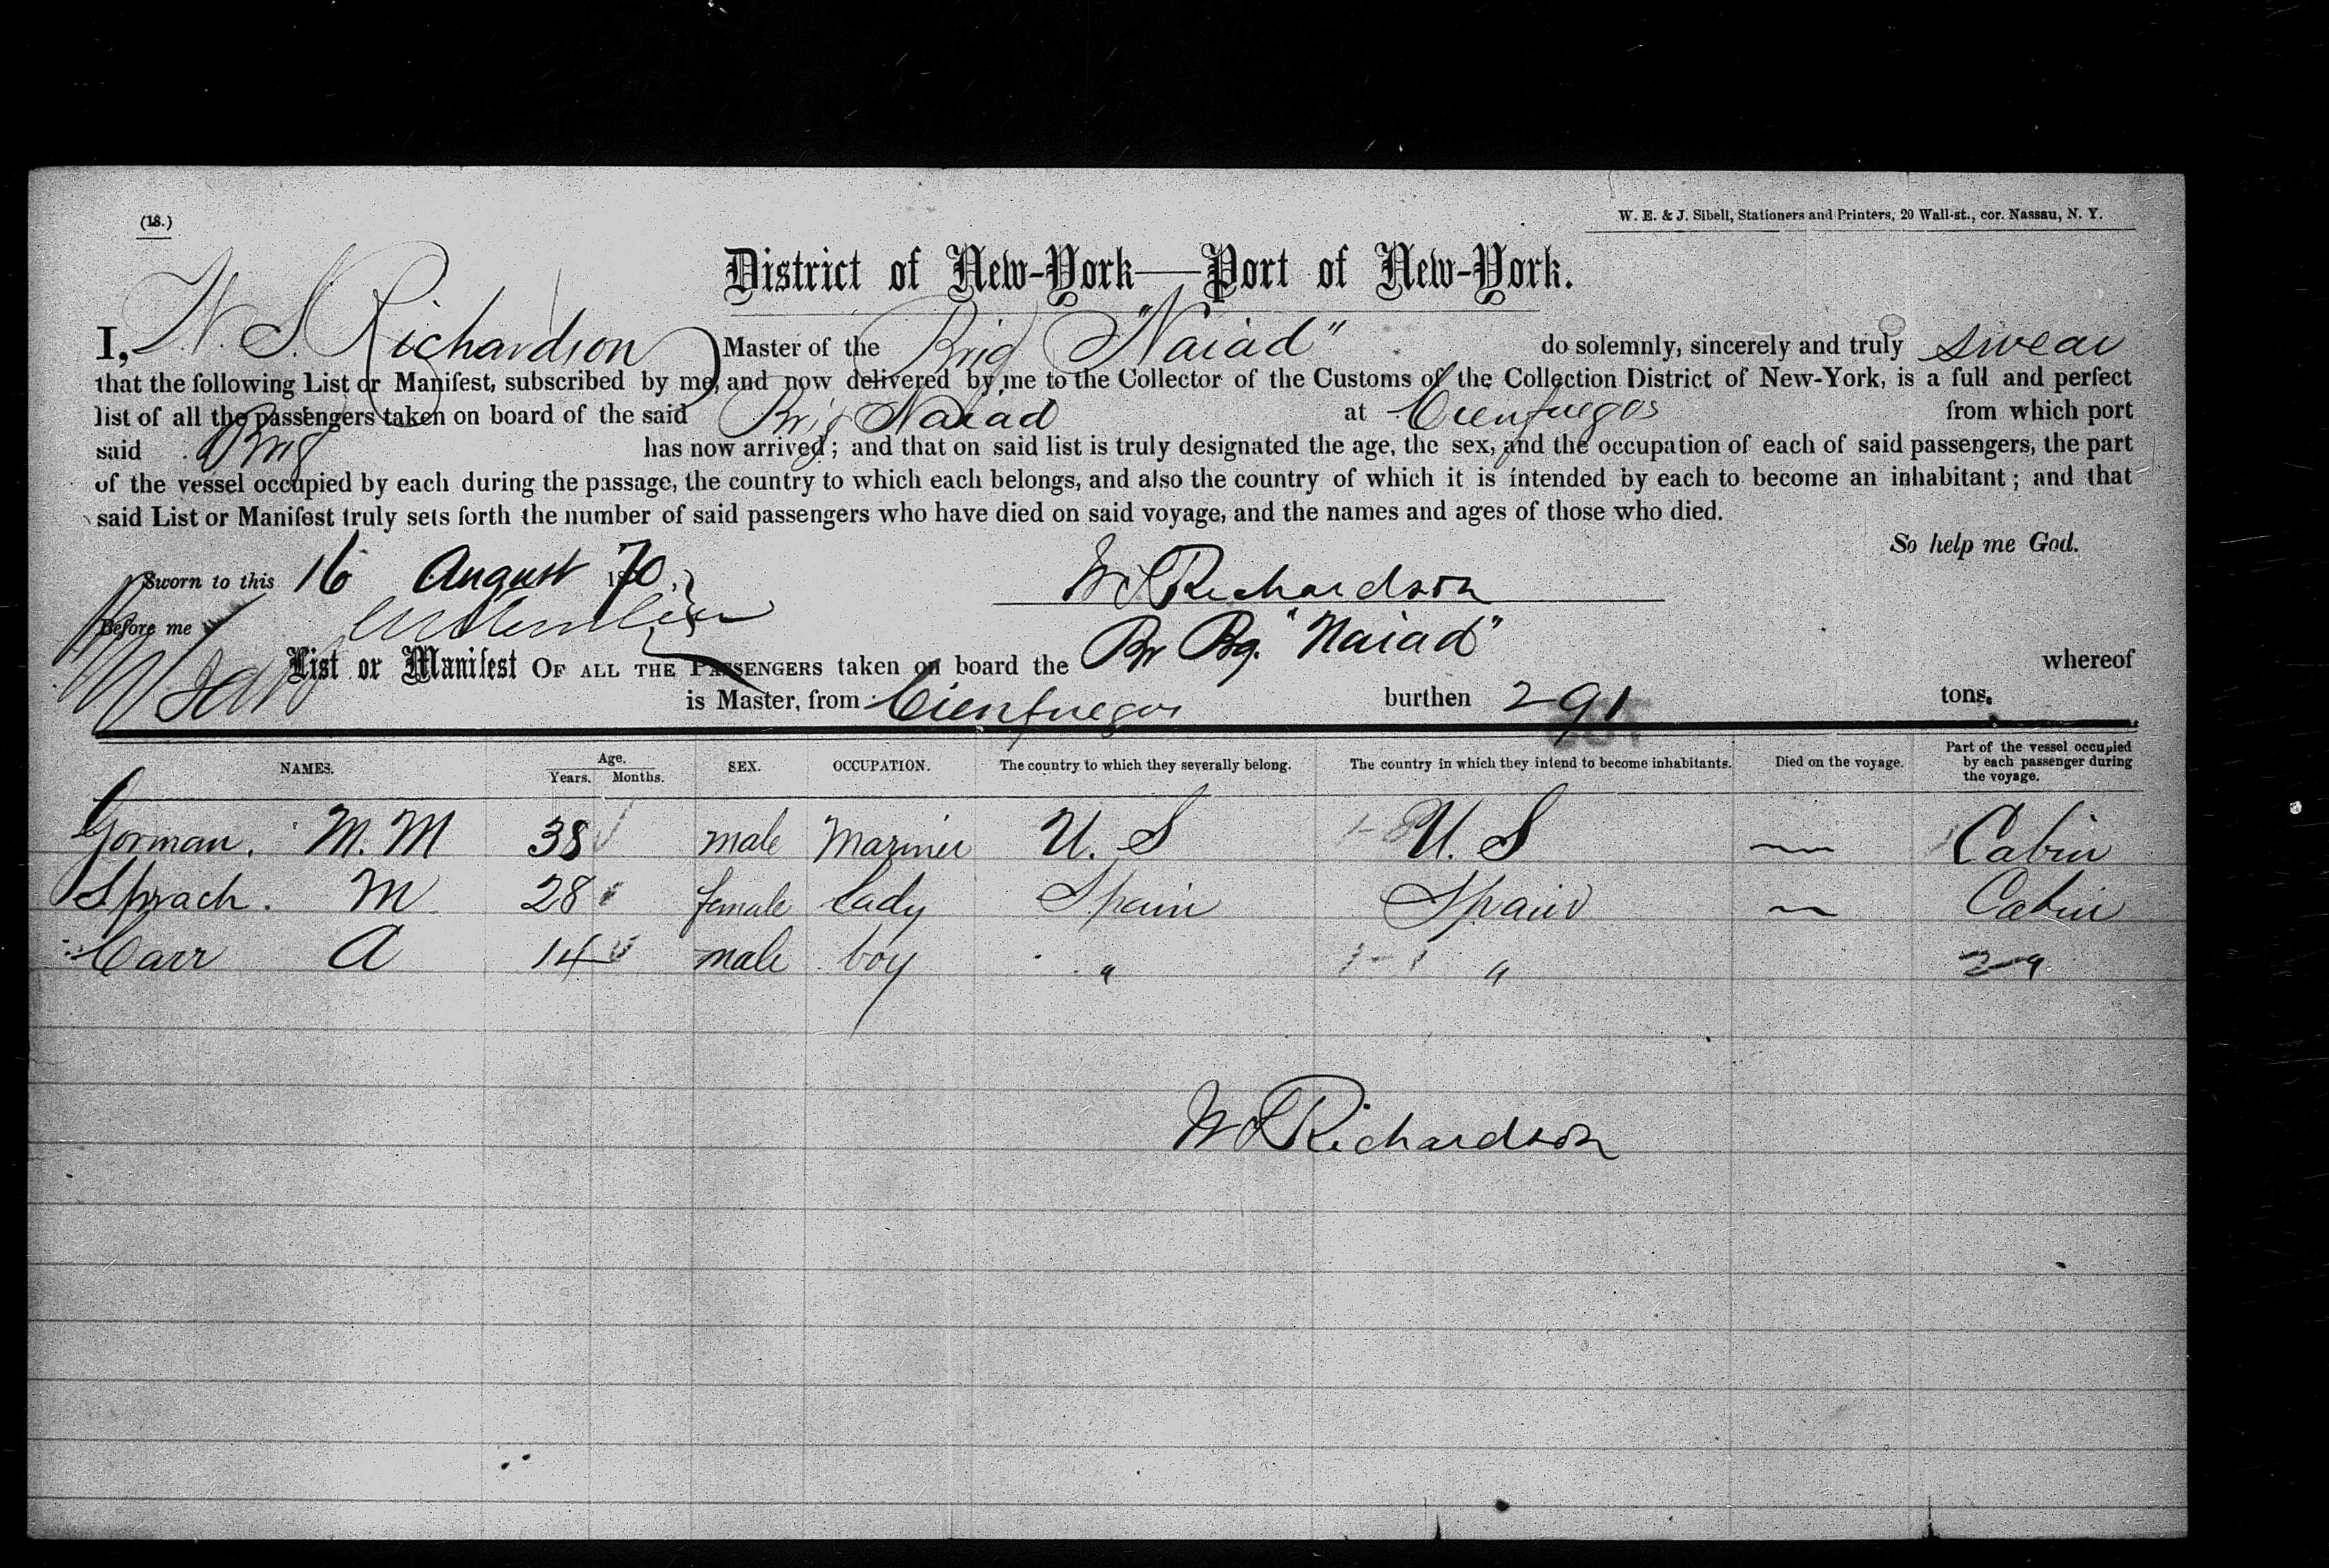 (18.)
W. E. & J. Sibell, Stationers and Printers, 20 Wall-st., cor. Nassau, N. Y.
District of New-York—Port of New-York.
I, W. S. Richardson Master of the Brig "Naiad" do solemnly, sincerely and truly swear
that the following List or Manifest, subscribed by me, and now delivered by me to the Collector of the Customs of the Collection District of New-York, is a full and perfect
list of all the passengers taken on board of the said Brig Naiad at Cienfuegos from which port
said Brig has now arrived; and that on said list is truly designated the age, the sex, and the occupation of each of said passengers, the part
of the vessel occupied by each during the passage, the country to which each belongs, and also the country of which it is intended by each to become an inhabitant; and that
said List or Manifest truly sets forth the number of said passengers who have died on said voyage, and the names and ages of those who died.
So help me God.
Sworn to this 16 August 1870
W S Richardson
Before me
List or Manifest OF ALL THE PASSENGERS taken on board the Br Bg. "Naiad" whereof
is Master, from Cienfuegos burthen 291 tons.
NAMES. Age. Years. Months. SEX. OCCUPATION. The country to which they severally belong. The country in which they intend to become inhabitants. Died on the voyage. Part of the vessel occupied by each passenger during the voyage.
Gorman. M. M 38 male Mariner U. S U. S — Cabin
M 28 female lady Spain Spain — Cabin
Carr A 14 male boy " "
W S Richardson